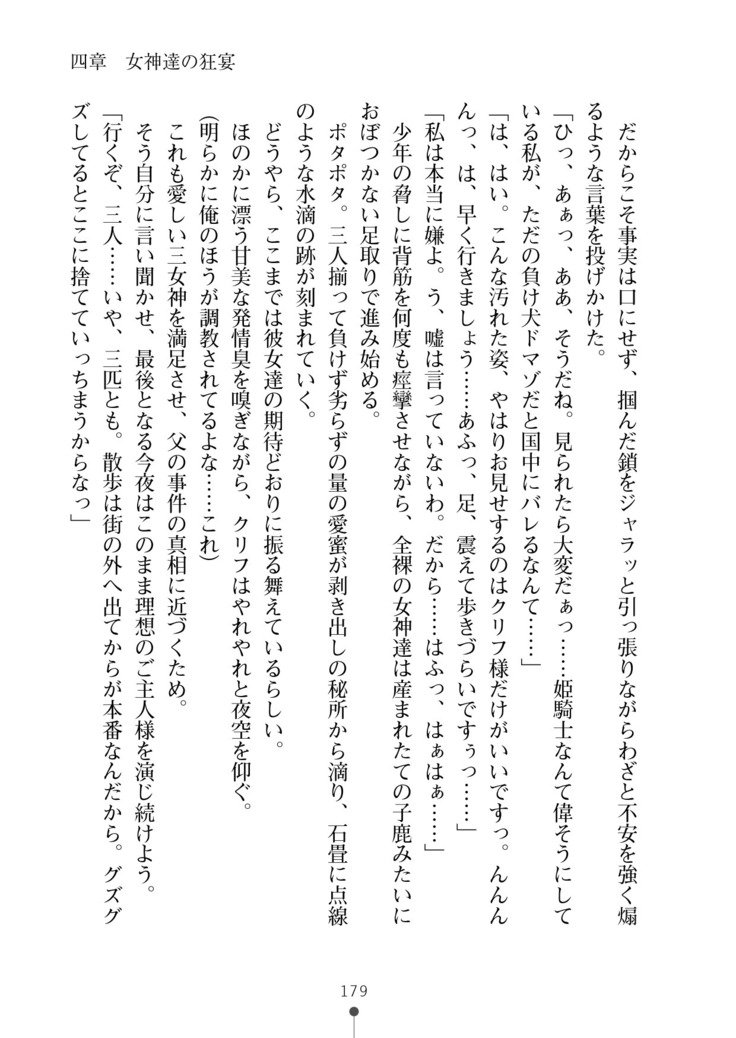 四章　女神達の狂宴
だからこそ事実は口にせず、掴んだ鎖をジャラッと引っ張りながらわざと不安を強く煽
るような言葉を投げかけた。
「ひっ、あぁっ、ああ、そうだね。見られたら大変だぁっ……姫騎士なんて偉そうにして
いる私が、ただの負け犬ドマゾだと国中にバレるなんて……」
「は、はい。こんな汚れた姿、やはりお見せするのはクリフ様だけがいいですっ。んんん
んっ、は、早く行きましょう……あふっ、足、震えて歩きづらいですぅっ……」
「私は本当に嫌よ。う、嘘は言っていないわ。だから……はふっ、はぁはぁ……」
少年の脅しに背筋を何度も痙攣させながら、全裸の女神達は産まれたての子鹿みたいに
おぼつかない足取りで進み始める。
ポタポタ。三人揃って負けず劣らずの量の愛蜜が剥き出しの秘所から滴り、石畳に点線
のような水滴の跡が刻まれていく。
どうやら、ここまでは彼女達の期待どおりに振る舞えているらしい。
ほのかに漂う甘美な発情臭を嗅ぎながら、クリフはやれやれと夜空を仰ぐ。
(明らかに俺のほうが調教されてるよな……これ)
これも愛しい三女神を満足させ、父の事件の真相に近づくため。
そう自分に言い聞かせ、最後となる今夜はこのまま理想のご主人様を演じ続けよう。
「行くぞ、三人……いや、三匹とも。散歩は街の外へ出てからが本番なんだから。グズグ
ズしてるとここに捨てていっちまうからなっ」
179